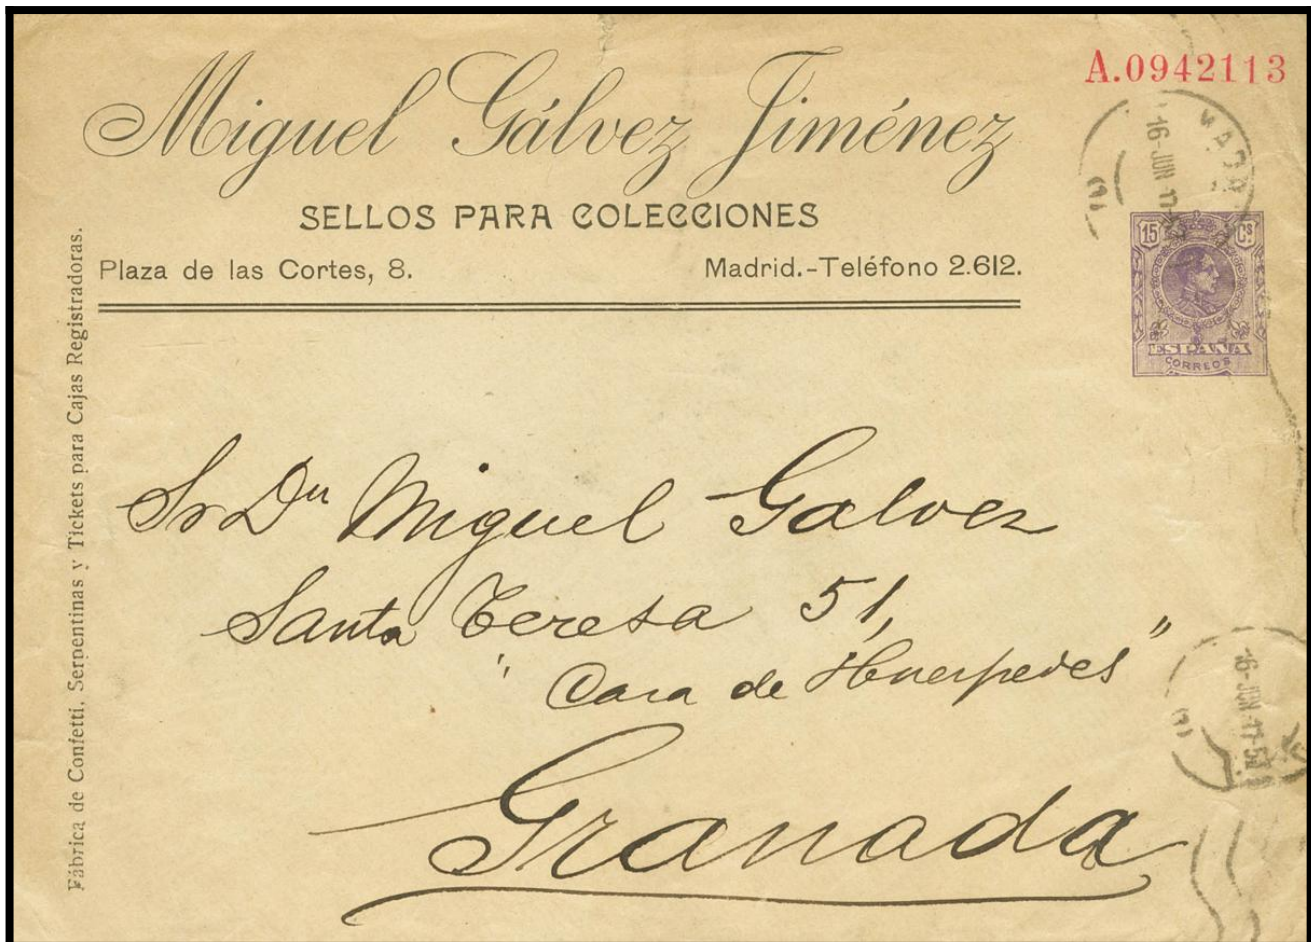 Miguel Gálvez Jiménez
A.0942113
SELLOS PARA COLECCIONES
Plaza de las Cortes, 8.
Madrid.-Teléfono 2.612.
15 Cs
ESPAÑA
CORREOS
16-JUN 17
Fábrica de Confetti, Serpentinas y Tickets para Cajas Registradoras.
Sr Dn Miguel Galvez
Santa Teresa 51,
"Casa de Huespedes"
Granada
16-JUN 17-5